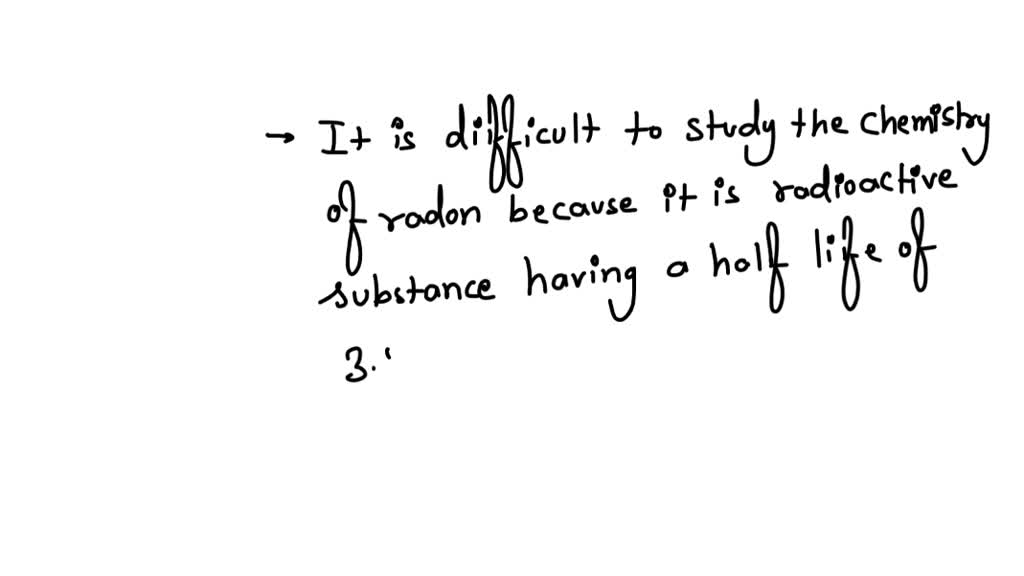 → It is difficult to study the chemistry
of radon because it is radioactive
substance having a half life of
3.